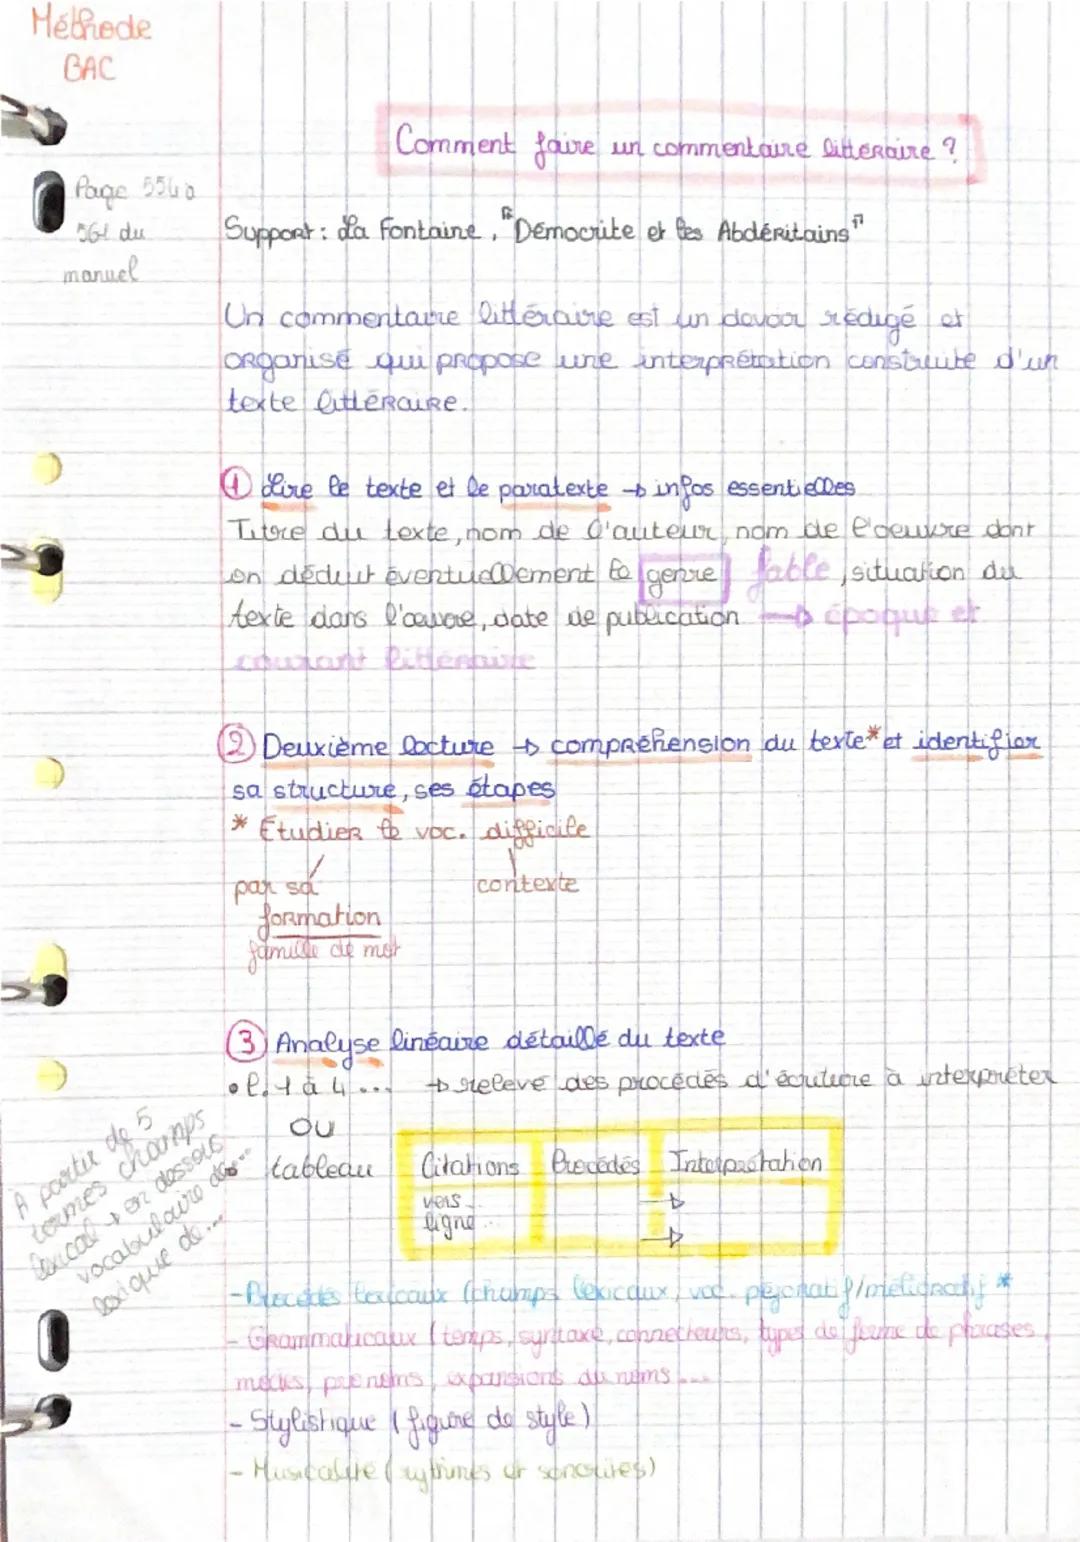 Méthode
BAC
Comment faire un commentaire littéraire ?
Page 554 à
561 du
manuel
Support : La Fontaine, "Démocrite et les Abdéritains"
Un commentaire littéraire est un devoir rédigé et
organisé qui propose une interprétation construite d'un
texte littéraire.
① Lire le texte et le paratexte → infos essentielles
Titre du texte, nom de l'auteur, nom de l'oeuvre dont
on déduit éventuellement le genre fable, situation du
texte dans l'œuvre, date de publication → époque et
courant littéraire
② Deuxième lecture → compréhension du texte* et identifier
sa structure, ses étapes
* Étudier le voc. difficile
par sa contexte
formation
famille de mot
③ Analyse linéaire détaillé du texte
• l. 1 à 4 ... → relevé des procédés d'écriture à interpréter
OU
tableau
Citations Procédés Interprétation
vers... →
ligne... →
A partir de 5
termes champs
lexical → en dessous
vocabulaire de...
lexique de...
- Procédés lexicaux (champs lexicaux, voc. péjoratif/mélioratif *
- Grammaticaux (temps, syntaxe, connecteurs, types de forme de phrases,
modes, pronoms, expansions du noms ...
- Stylistique (figure de style)
- Musicalité (rythmes et sonorités)